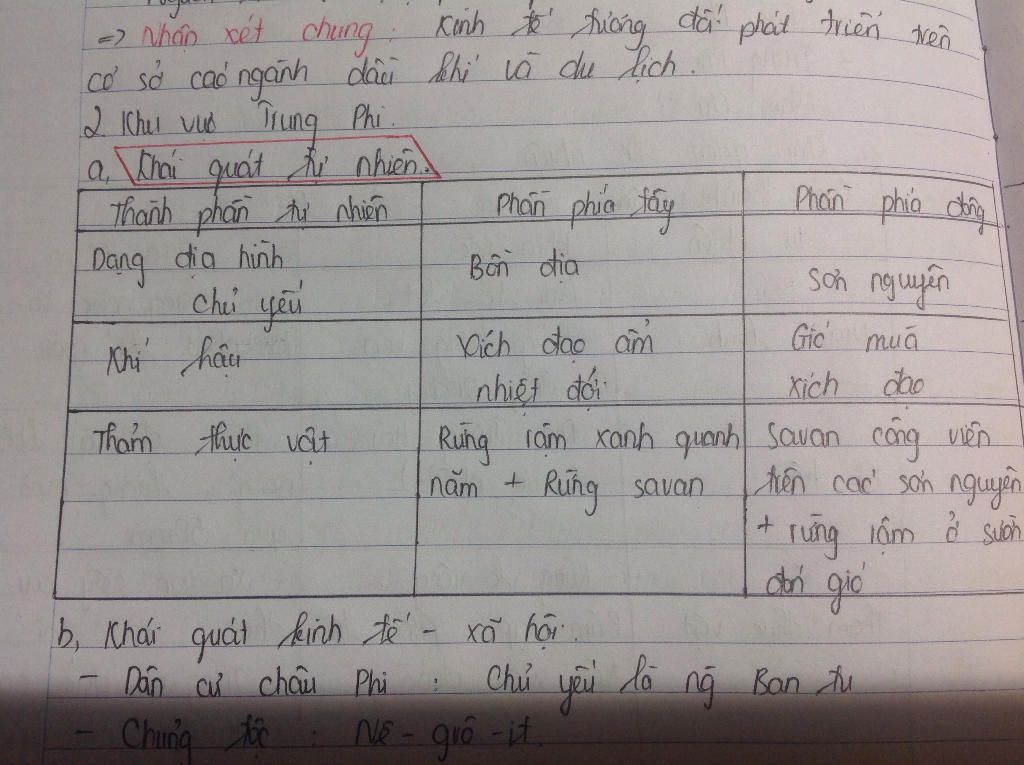 => Nhận xét chung : Kinh tế tương đối phát triển trên
cơ sở các ngành dầu khí và du lịch.
2 Khu vực Trung Phi.
a, Khái quát tự nhiên.
Thành phần tự nhiên
Phần phía tây
Phần phía đông
Dạng địa hình
chủ yếu
Bồn địa
Sơn nguyên
Khí hậu
Xích đạo ẩm
nhiệt đới.
Gió mùa
xích đạo
Thảm thực vật
Rừng rậm xanh quanh
năm + Rừng savan
Savan công viên
trên các sơn nguyên
+ rừng rậm ở sườn
đón gió
b, Khái quát kinh tế - xã hội.
- Dân cư châu Phi : Chủ yếu là ng Ban tu
- Chủng tộc : Nê - grô - it.